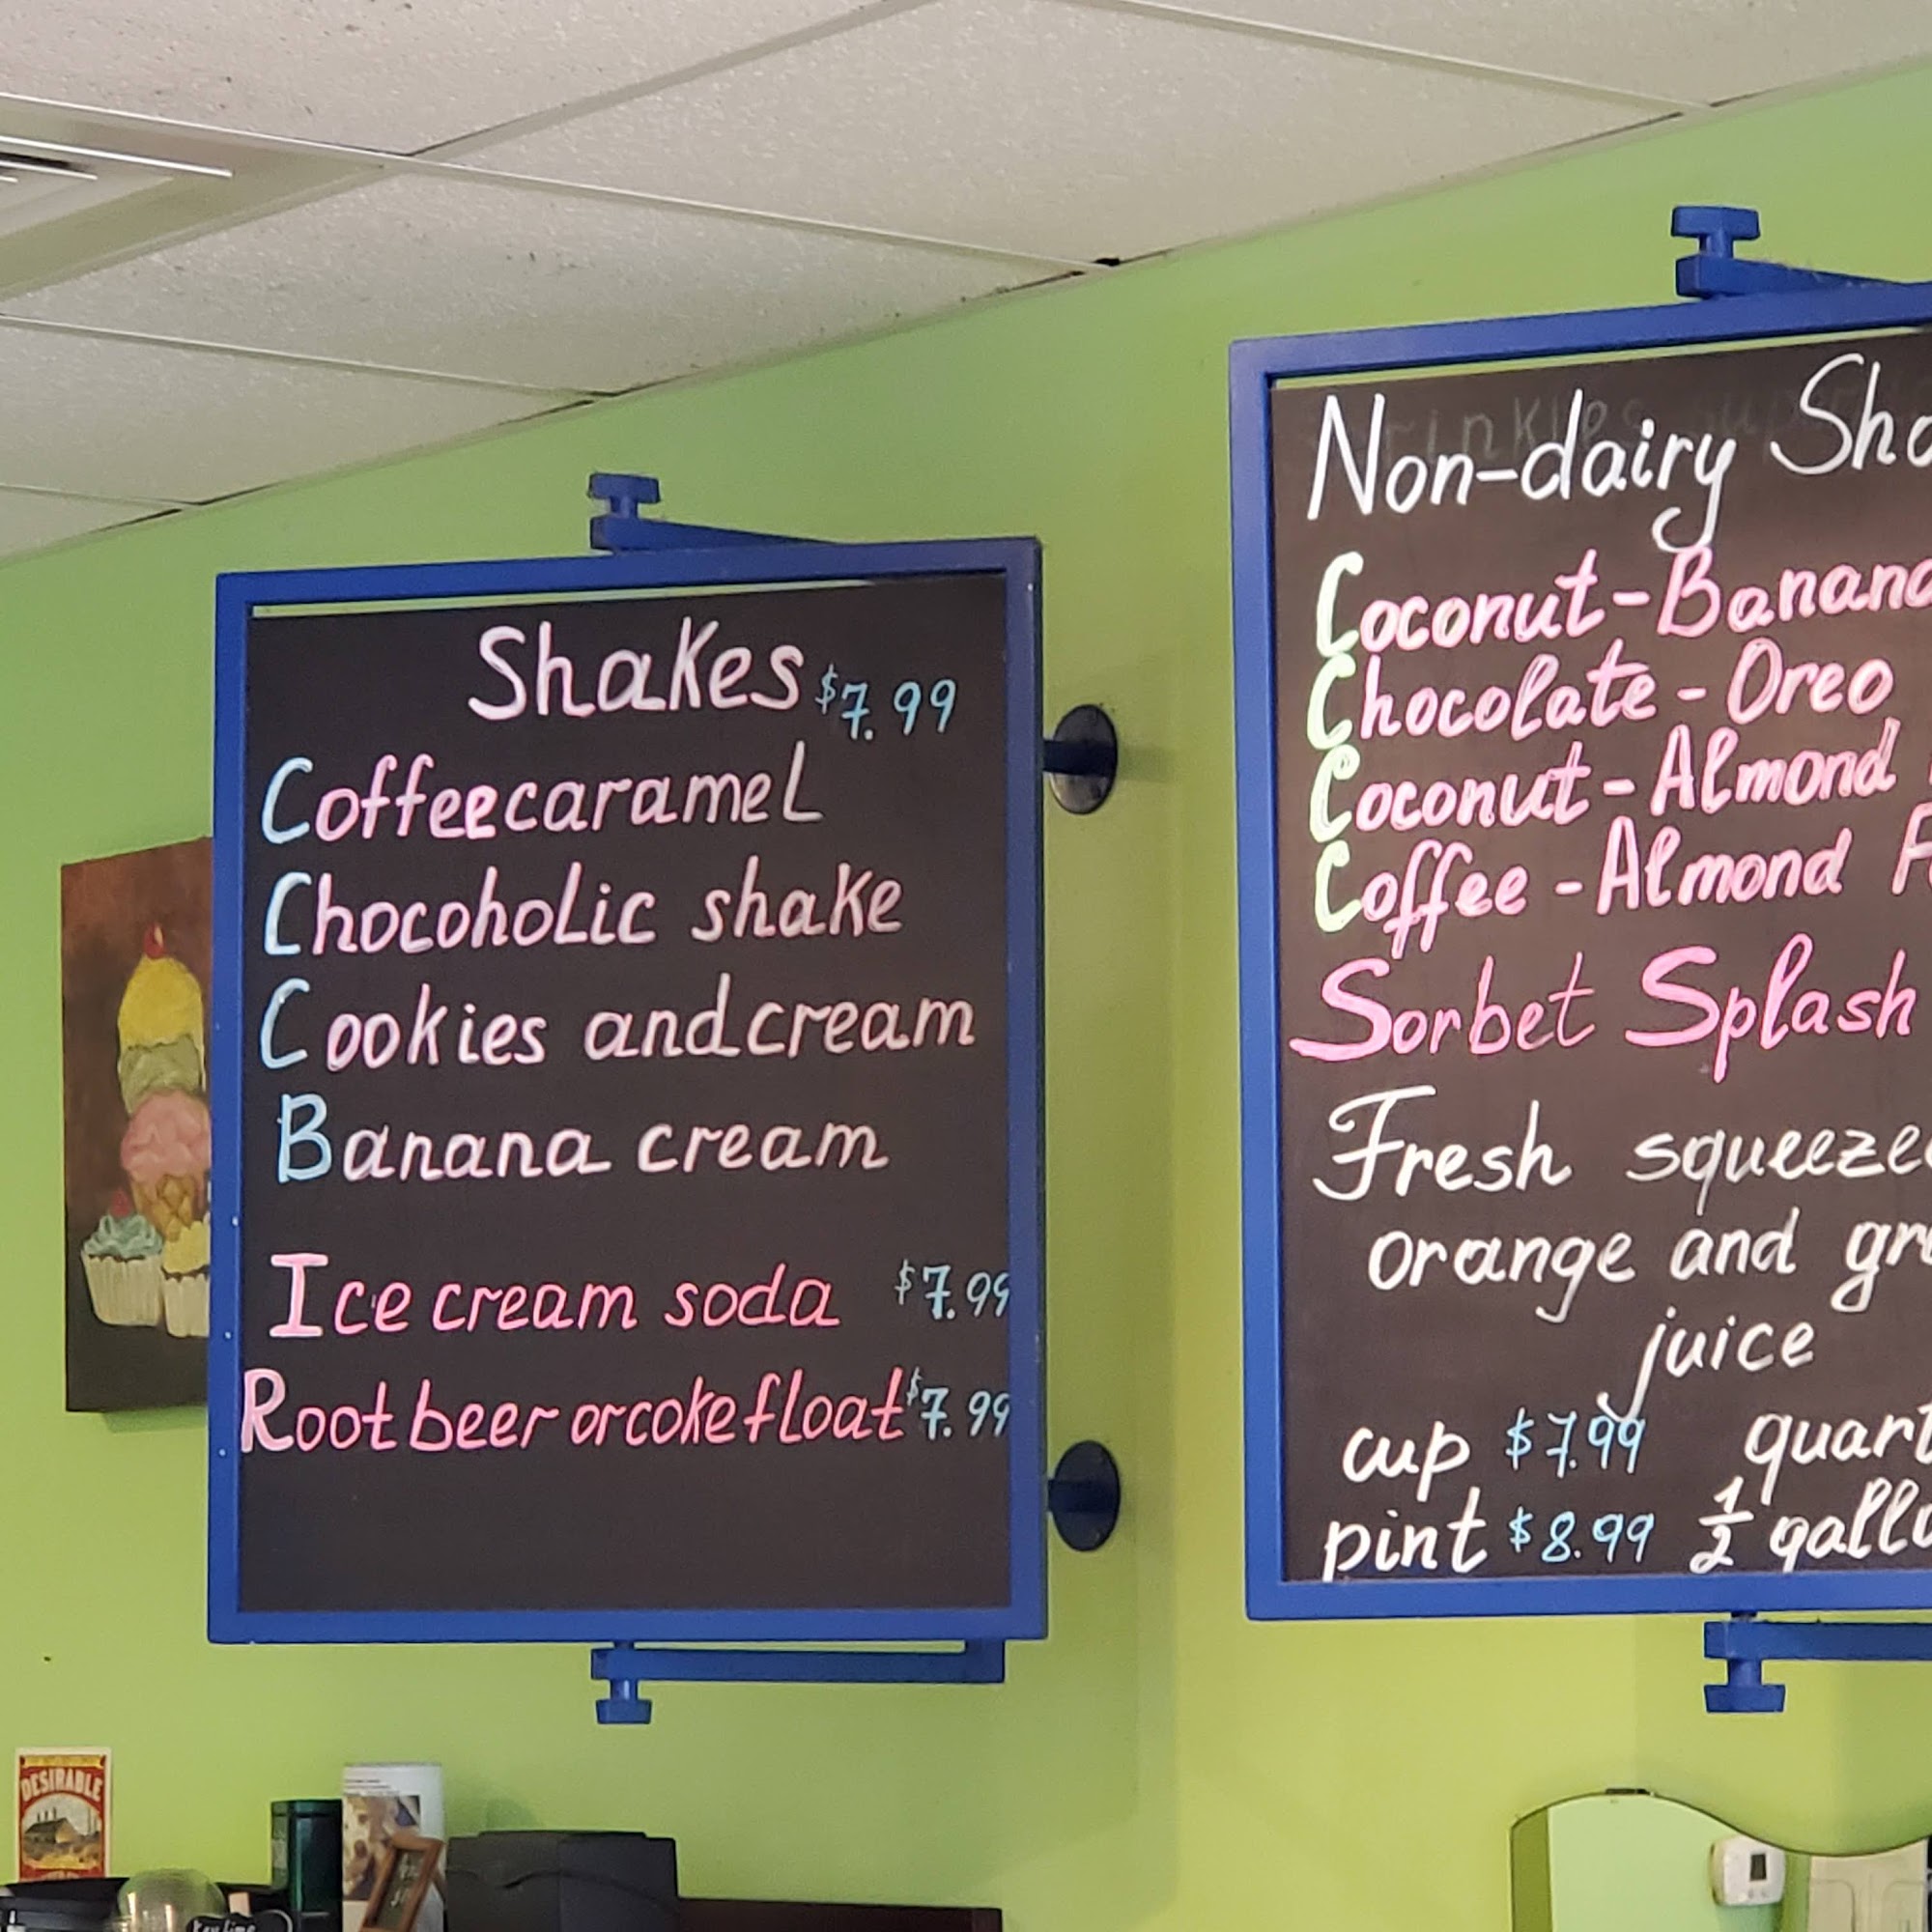 Shakes $7.99
Coffee caramel
Chocoholic shake
Cookies and cream
Banana cream
Ice cream soda $7.99
Root beer or coke float $7.99
Non-dairy
Coconut-Banana
Chocolate-Oreo
Coconut-Almond
Coffee-Almond
Sorbet Splash
Fresh
orange and
juice
cup $7.99 quart
pint $8.99 1/2
DESIRABLE
Key lime